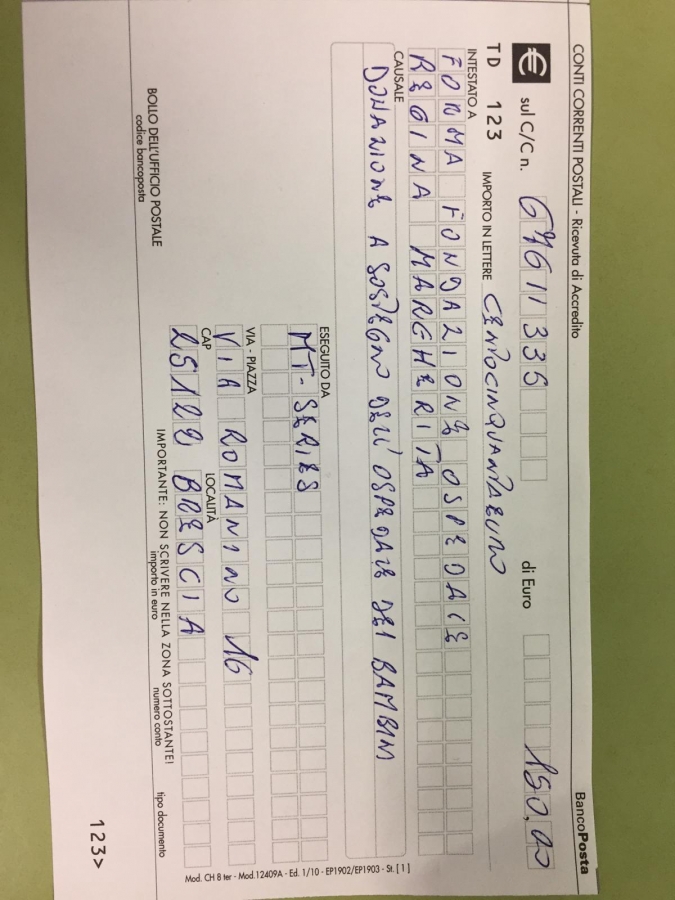 CONTI CORRENTI POSTALI - Ricevuta di Accredito BancoPosta
€ sul C/C n. 67611335 di Euro 150,00
TD 123 IMPORTO IN LETTERE
INTESTATO A
FORMA FONDAZIONE OSPEDALE
REGINA MARGHERITA
CAUSALE
DONAZIONE A SOSTEGNO DELL' OSPEDALE DEI BAMBINI
ESEGUITO DA
MT-SERIES
VIA - PIAZZA
VIA ROMANINO 16
CAP LOCALITÀ
25122 BRESCIA
BOLLO DELL'UFFICIO POSTALE
codice bancoposta
IMPORTANTE: NON SCRIVERE NELLA ZONA SOTTOSTANTE!
importo in euro numero conto tipo documento
123>
Mod. CH 8 ter - Mod.12409A - Ed. 1/10 - EP1902/EP1903 - St. [1]